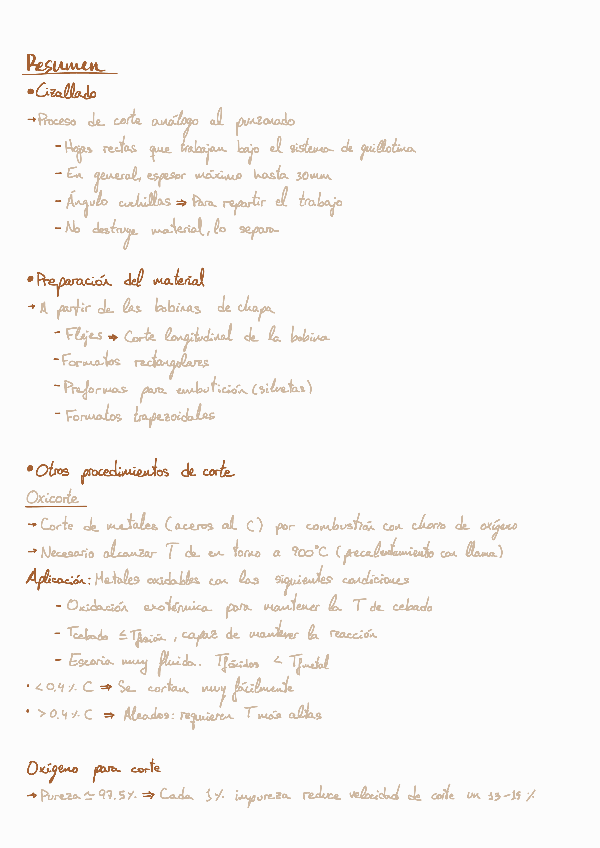 Resumen
• Cizallado
→ Proceso de corte análogo al punzonado
- Hojas rectas que trabajan bajo el sistema de guillotina
- En general, espesor máximo hasta 30mm
- Ángulo cuchillas ⇒ Para repartir el trabajo
- No destruye material, lo separa
• Preparación del material
→ A partir de las bobinas de chapa
- Flejes ⇒ Corte longitudinal de la bobina
- Formatos rectangulares
- Preformas para embutición (siluetas)
- Formatos trapezoidales
• Otros procedimientos de corte
Oxicorte
→ Corte de metales (aceros al C) por combustión con chorro de oxígeno
→ Necesario alcanzar T de en torno a 900°C (precalentamiento con llama)
Aplicación: Metales oxidables con las siguientes condiciones
- Oxidación exotérmica para mantener la T de cebado
- Tcebado ≤ Tfusión, capaz de mantener la reacción
- Escoria muy fluida. Tfóxidos < Tfmetal
• < 0.4% C ⇒ Se cortan muy fácilmente
• > 0.4% C ⇒ Aleados: requieren T más altas
Oxígeno para corte
→ Pureza ≃ 97.5% ⇒ Cada 1% impureza reduce velocidad de corte un %